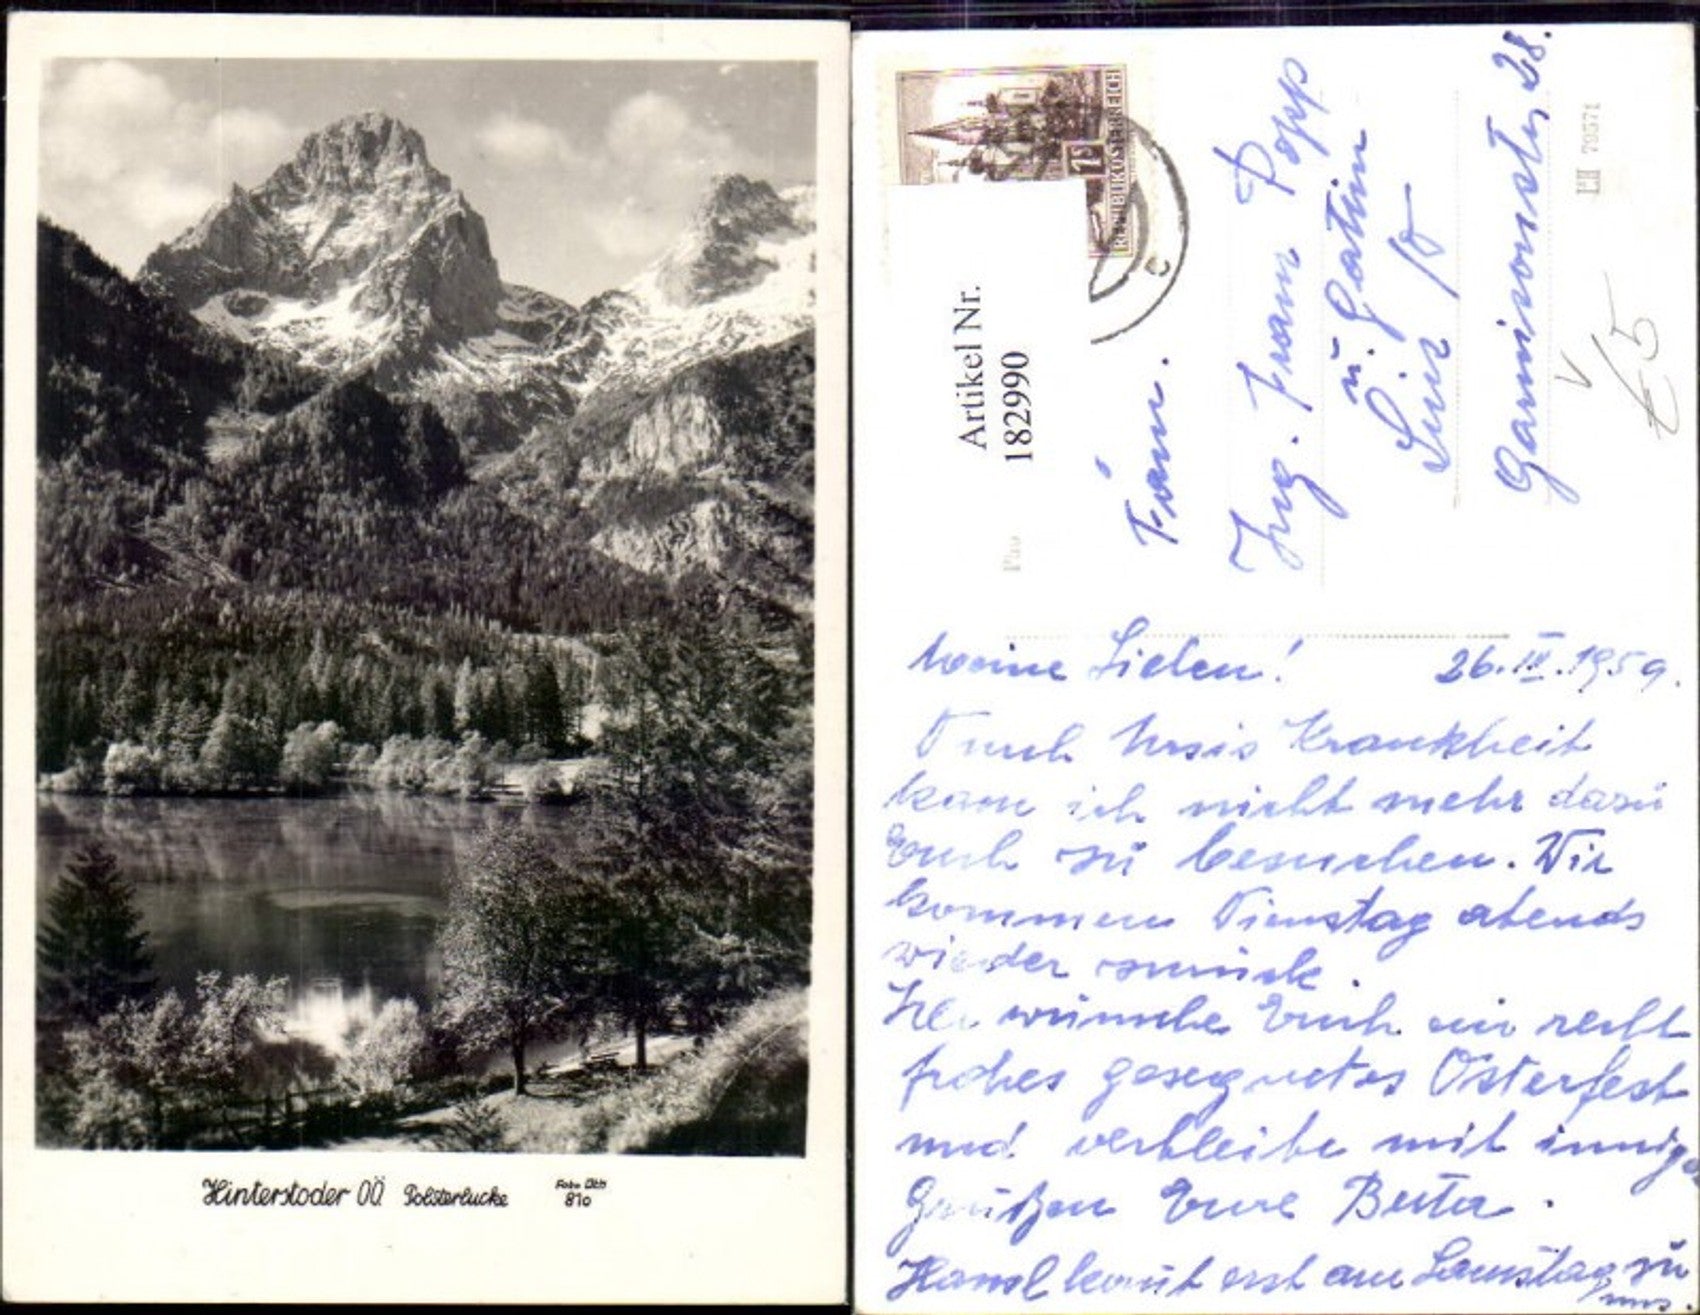 Hinterstoder OÖ. Polsterlucke
810
REPUBLIK ÖSTERREICH
Artikel Nr.
182990
Fam.
Ing. Franz Popp
u. Gattin
Linz
Garnisonstr. 28.
€ 5
Meine Lieben! 26.III.1959.
Durch Ursis Krankheit
kam ich nicht mehr dazu
Euch zu besuchen. Wir
kommen Dienstag abends
wieder zurück.
Ich wünsche Euch ein recht
frohes gesegnetes Osterfest
und verbleibe mit innigen
Grüßen Eure Berta.
Hansl kommt erst am Samstag zu
uns.